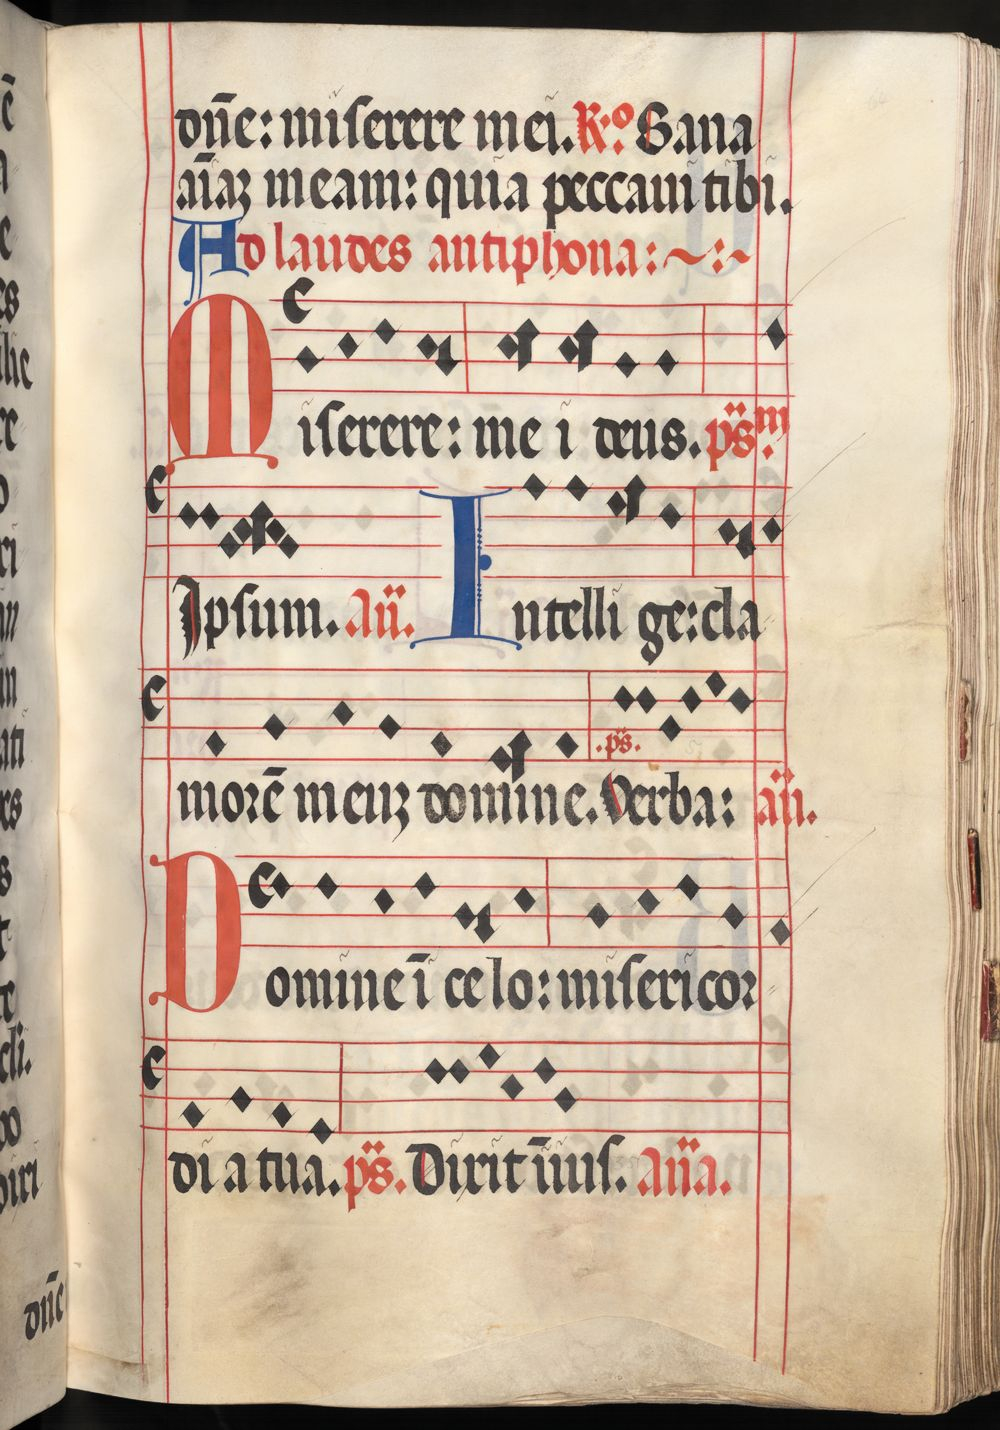 dn̄e: miserere mei. R.º Sana
aīaꝫ meam: quia peccaui tibi.
Ad laudes antiphona: ~:~
Miserere: me i deus. ps̄.ᵐ
Ipsum. an̄. Intelli ge: cla
morē meuꝫ domine. .ps̄. Verba: an̄.
Domine ī ce lo: misericor
di a tua. ps̄. Dixit īius. An̄a.
dn̄e